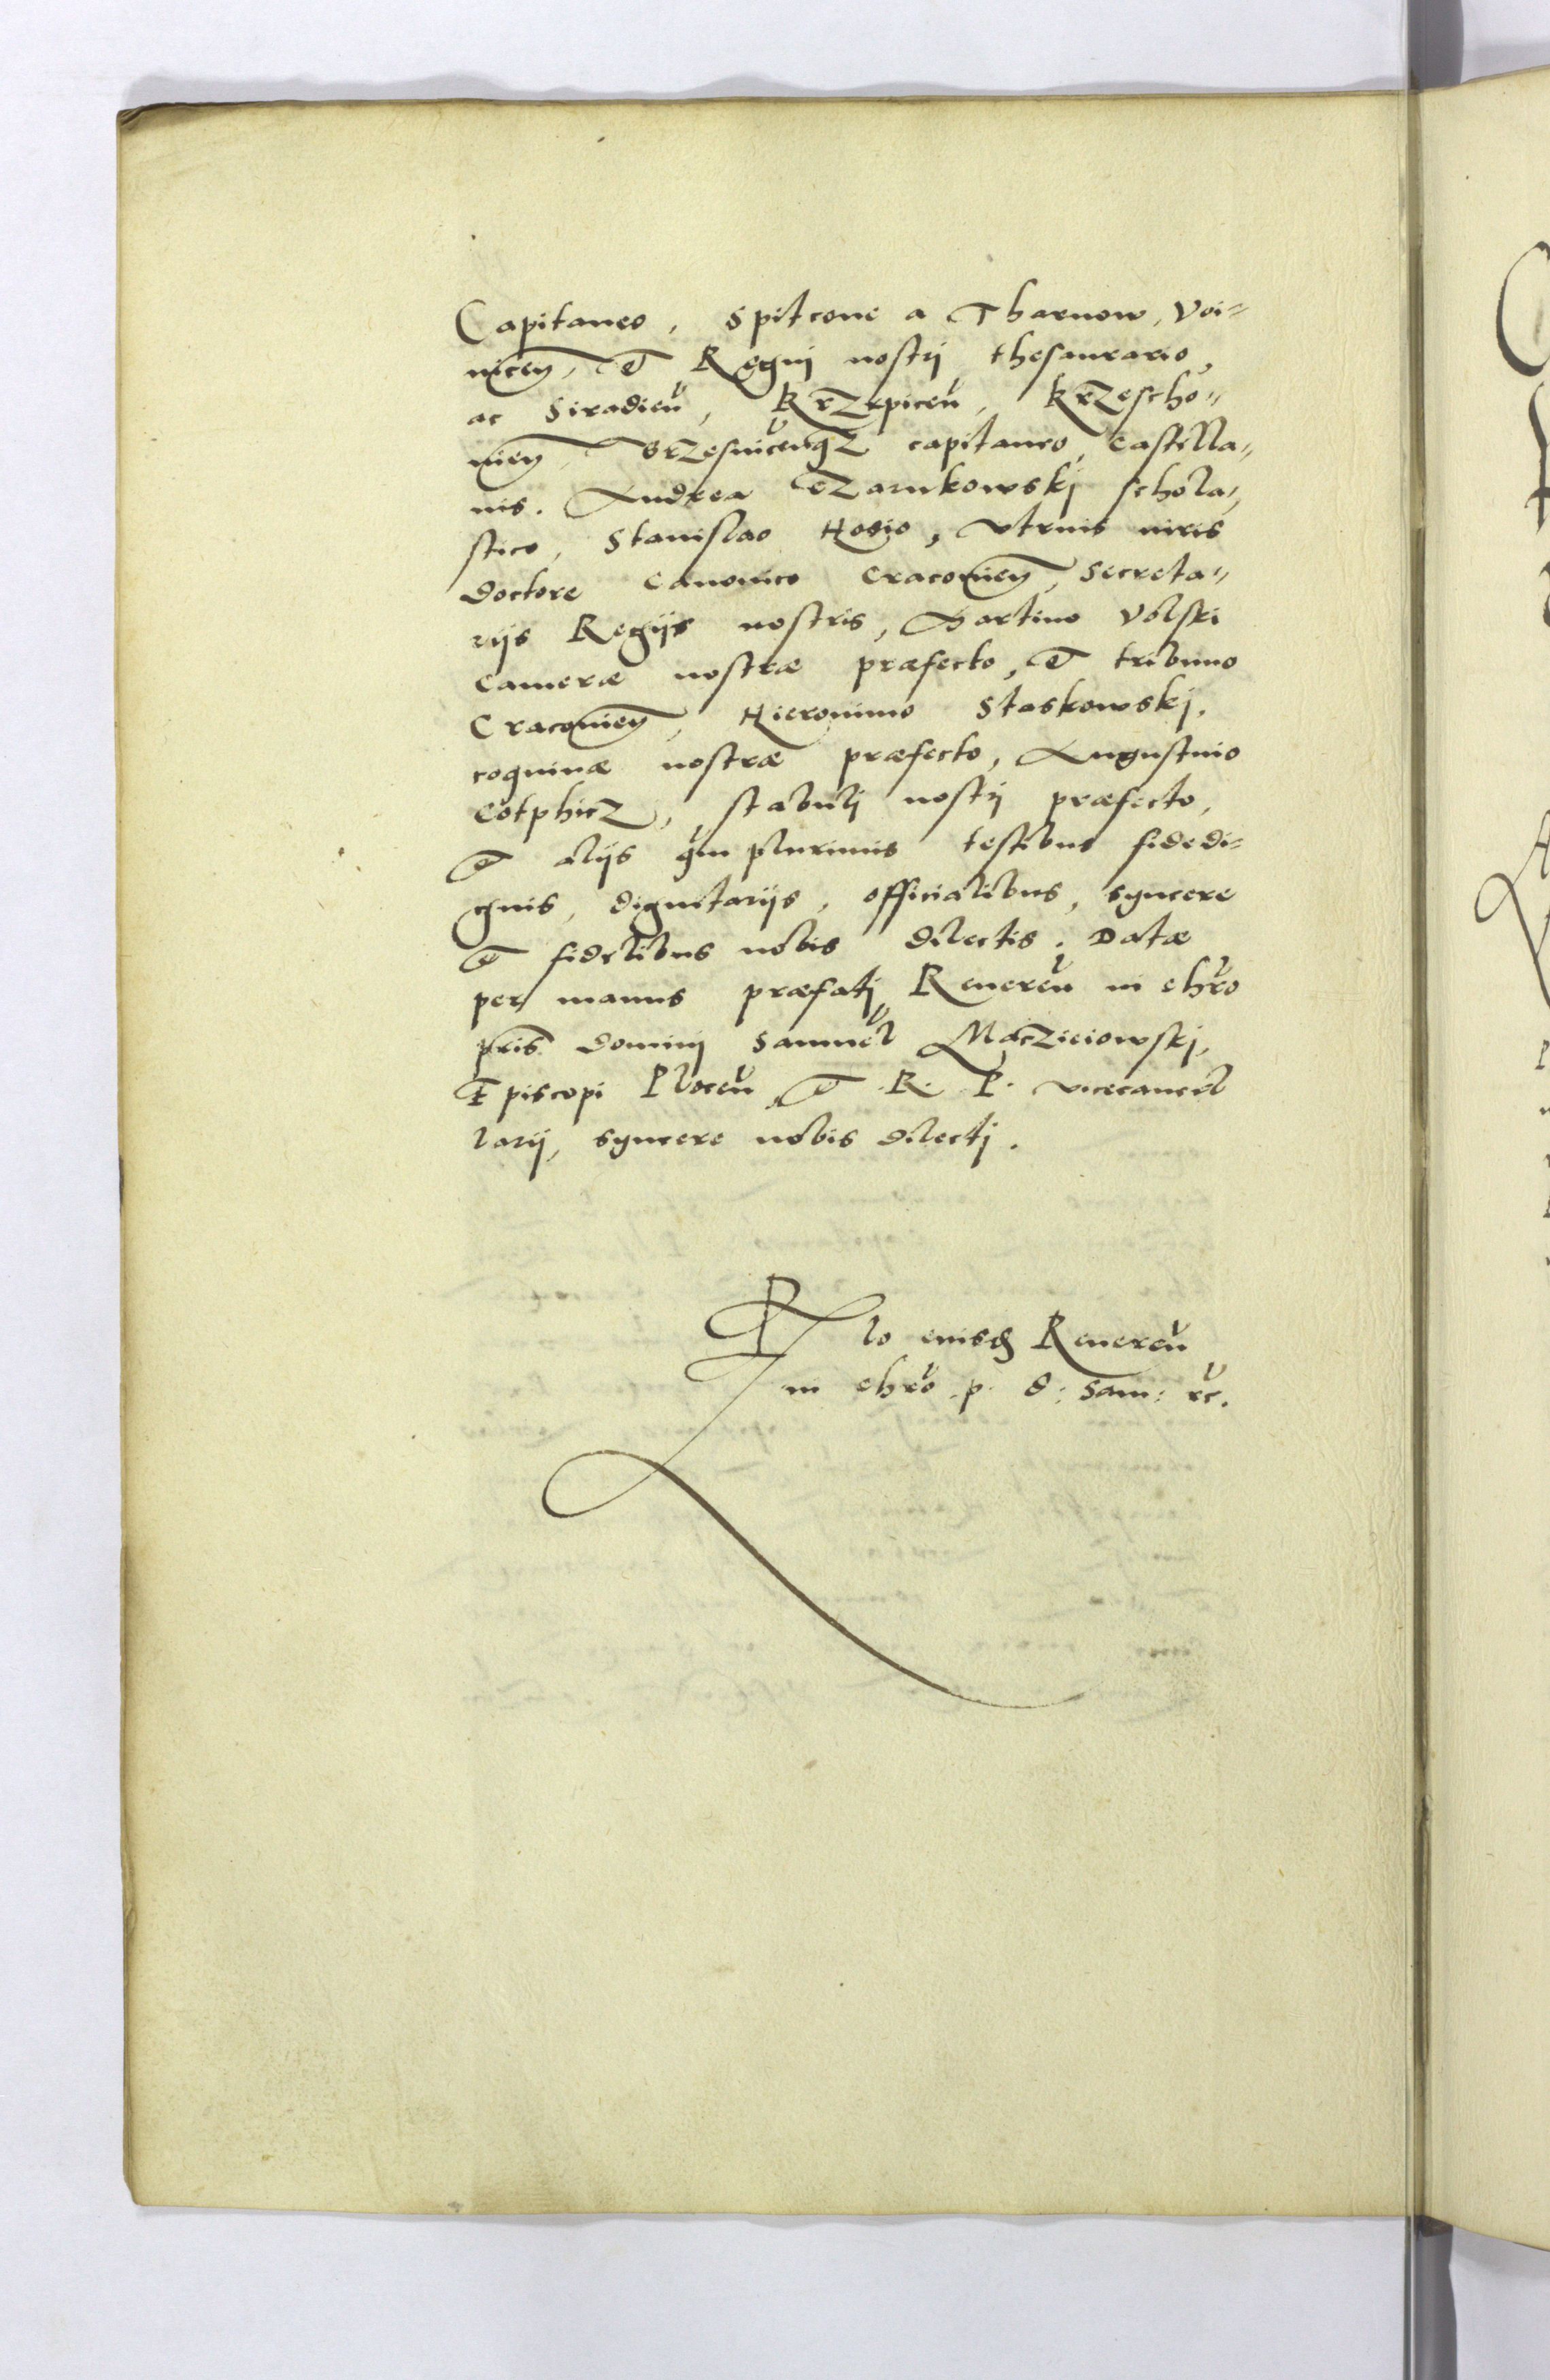 Capitaneo, Spitcone a Tharnow, Voi=
nicen, et Regni nostrj thesaurario,
ac Siradien, Krzepicen, Krzescho=
uien, Brzesnicenqz capitaneo, Castella=
nis. Andrea Czarnkowskj schola=
stico, Stanislao Hosio, vtriusq iuris
doctore Canonico Cracouien, Secreta=
rijs Regijs nostris, Martino Volski
Camerae nostrae praefecto, et tribuno
Cracouien, Hieronimo Staskowskj,
coquinae nostrae praefecto, Augustino
Cotphicz, stabulj nostrj praefecto,
et alijs qm plurimis testibus fidedi=
gnis, dignitarijs, officialibus, syncere
et fidelibus nobis dilectis. Datae
per manus praefatj Reueren in chro
pris dominj Samuel Maczieiowskj,
Episcopi Plocen et R. P. vicecancel
larij, syncere nobis dilectj.
Rlo eiusd Reueren
in chro .p. d: Sam: rc.